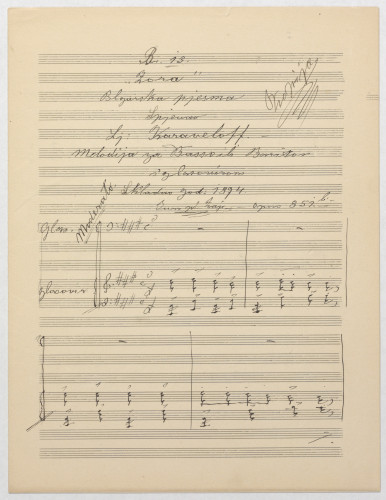 Br. 13.
„Zora“
Bugarska pjesma
Spjevao
Lj. Karaveloff. –
Melodija za Basso ili Bariton
s glasovirom
Skladao god. 1894
Ivan pl. Zajc. – opus 852 b.
Moderato
Glas
glasovir